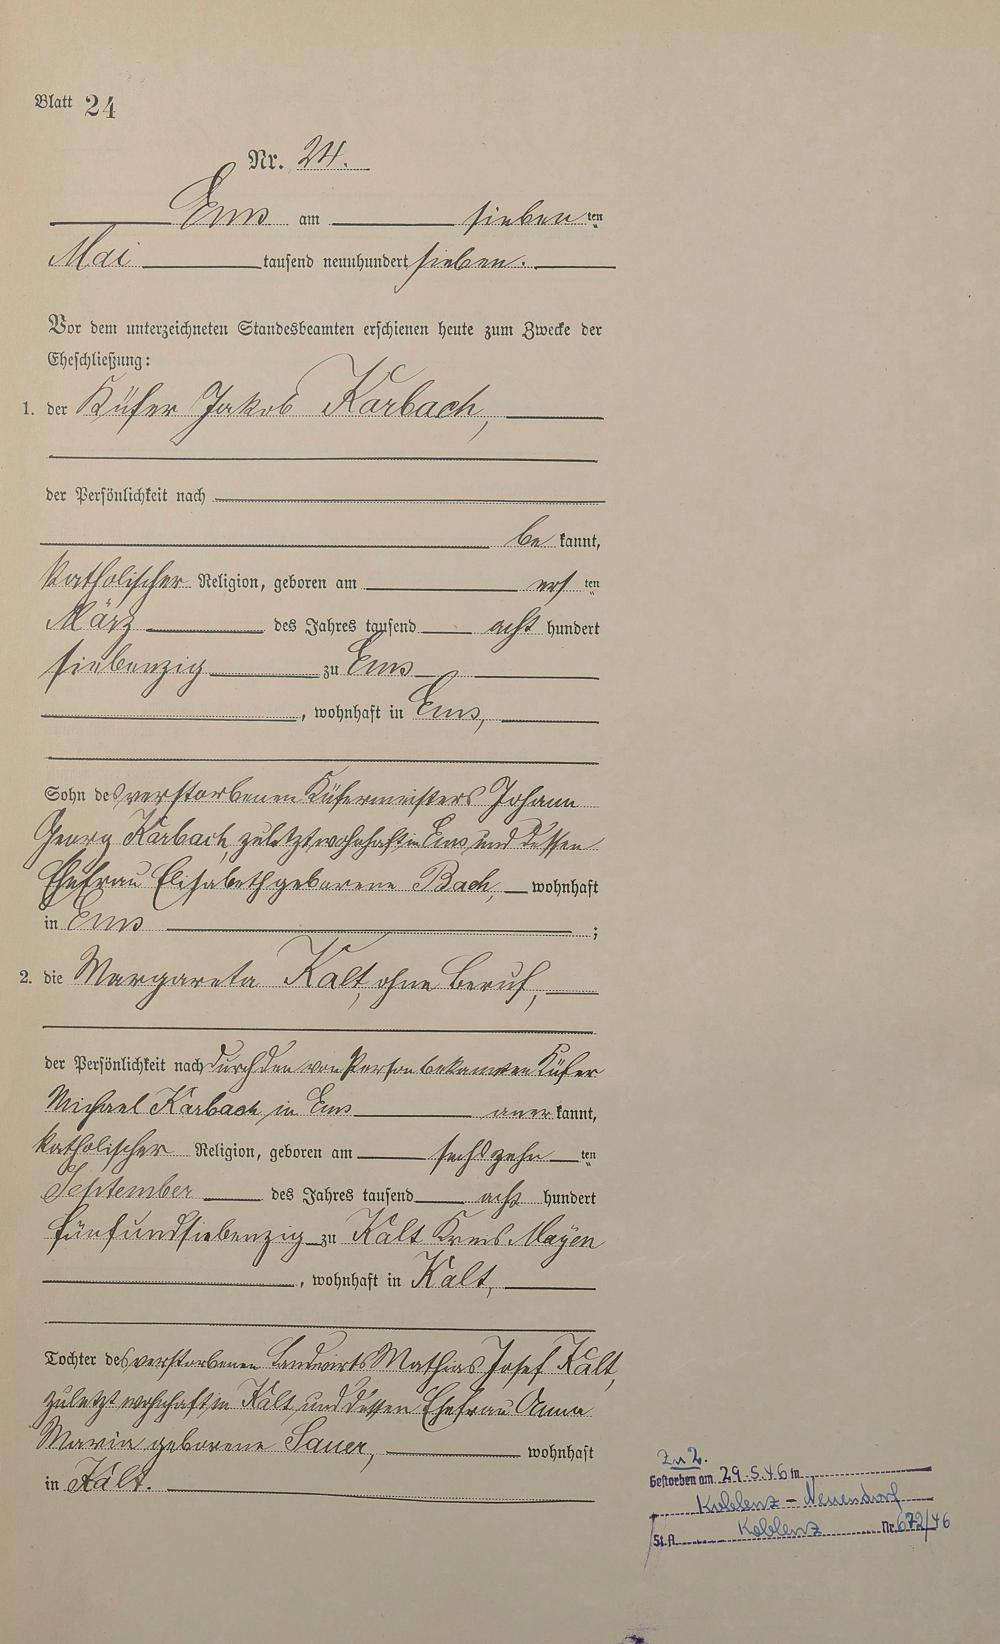 Blatt 24
Nr. 24.
Ems am siebenten
Mai tausend neunhundert sieben.
Vor dem unterzeichneten Standesbeamten erschienen heute zum Zwecke der
Eheschließung:
1. der Küfer Jakob Karbach,
der Persönlichkeit nach
be kannt,
katholischer Religion, geboren am ersten
März des Jahres tausend acht hundert
siebenzig zu Ems
, wohnhaft in Ems,
Sohn des verstorbenen Küfermeisters Johann
Georg Karbach, zuletzt wohnhaft in Ems und dessen
Ehefrau Elisabeth geborene Bach, wohnhaft
in Ems ;
2. die Margareta Kalt, ohne Beruf,
der Persönlichkeit nach durch den von Person bekannten Küfer
Michael Karbach in Ems aner kannt,
katholischer Religion, geboren am sechszehnten
September des Jahres tausend acht hundert
fünfundsiebenzig zu Kalt Kreis Mayen
, wohnhaft in Kalt,
Tochter des verstorbenen Landwirts Mathias Josef Kalt,
zuletzt wohnhaft in Kalt und dessen Ehefrau Anna
Maria geborene Sauer, wohnhaft
in Kalt.
Zu 2.
Gestorben am 29.5.46 in
Koblenz - Neuendorf
St.A. Koblenz Nr. 672/46